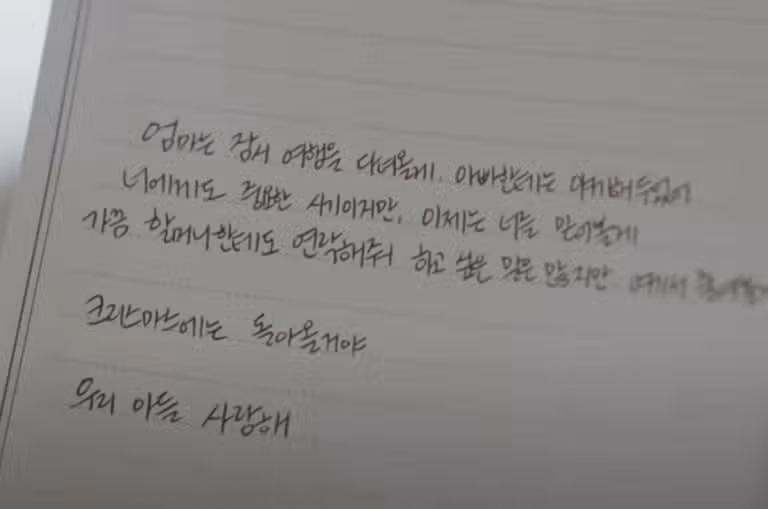 엄마는 잠시 여행을 다녀올게. 아빠한테는 얘기해두었어
너에게도 중요한 시기이지만, 이제는 너를 믿어볼게
가끔 할머니한테도 연락해줘 하고 싶은 말은 많지만 여기서
크리스마스에는 돌아올거야
우리 아들 사랑해